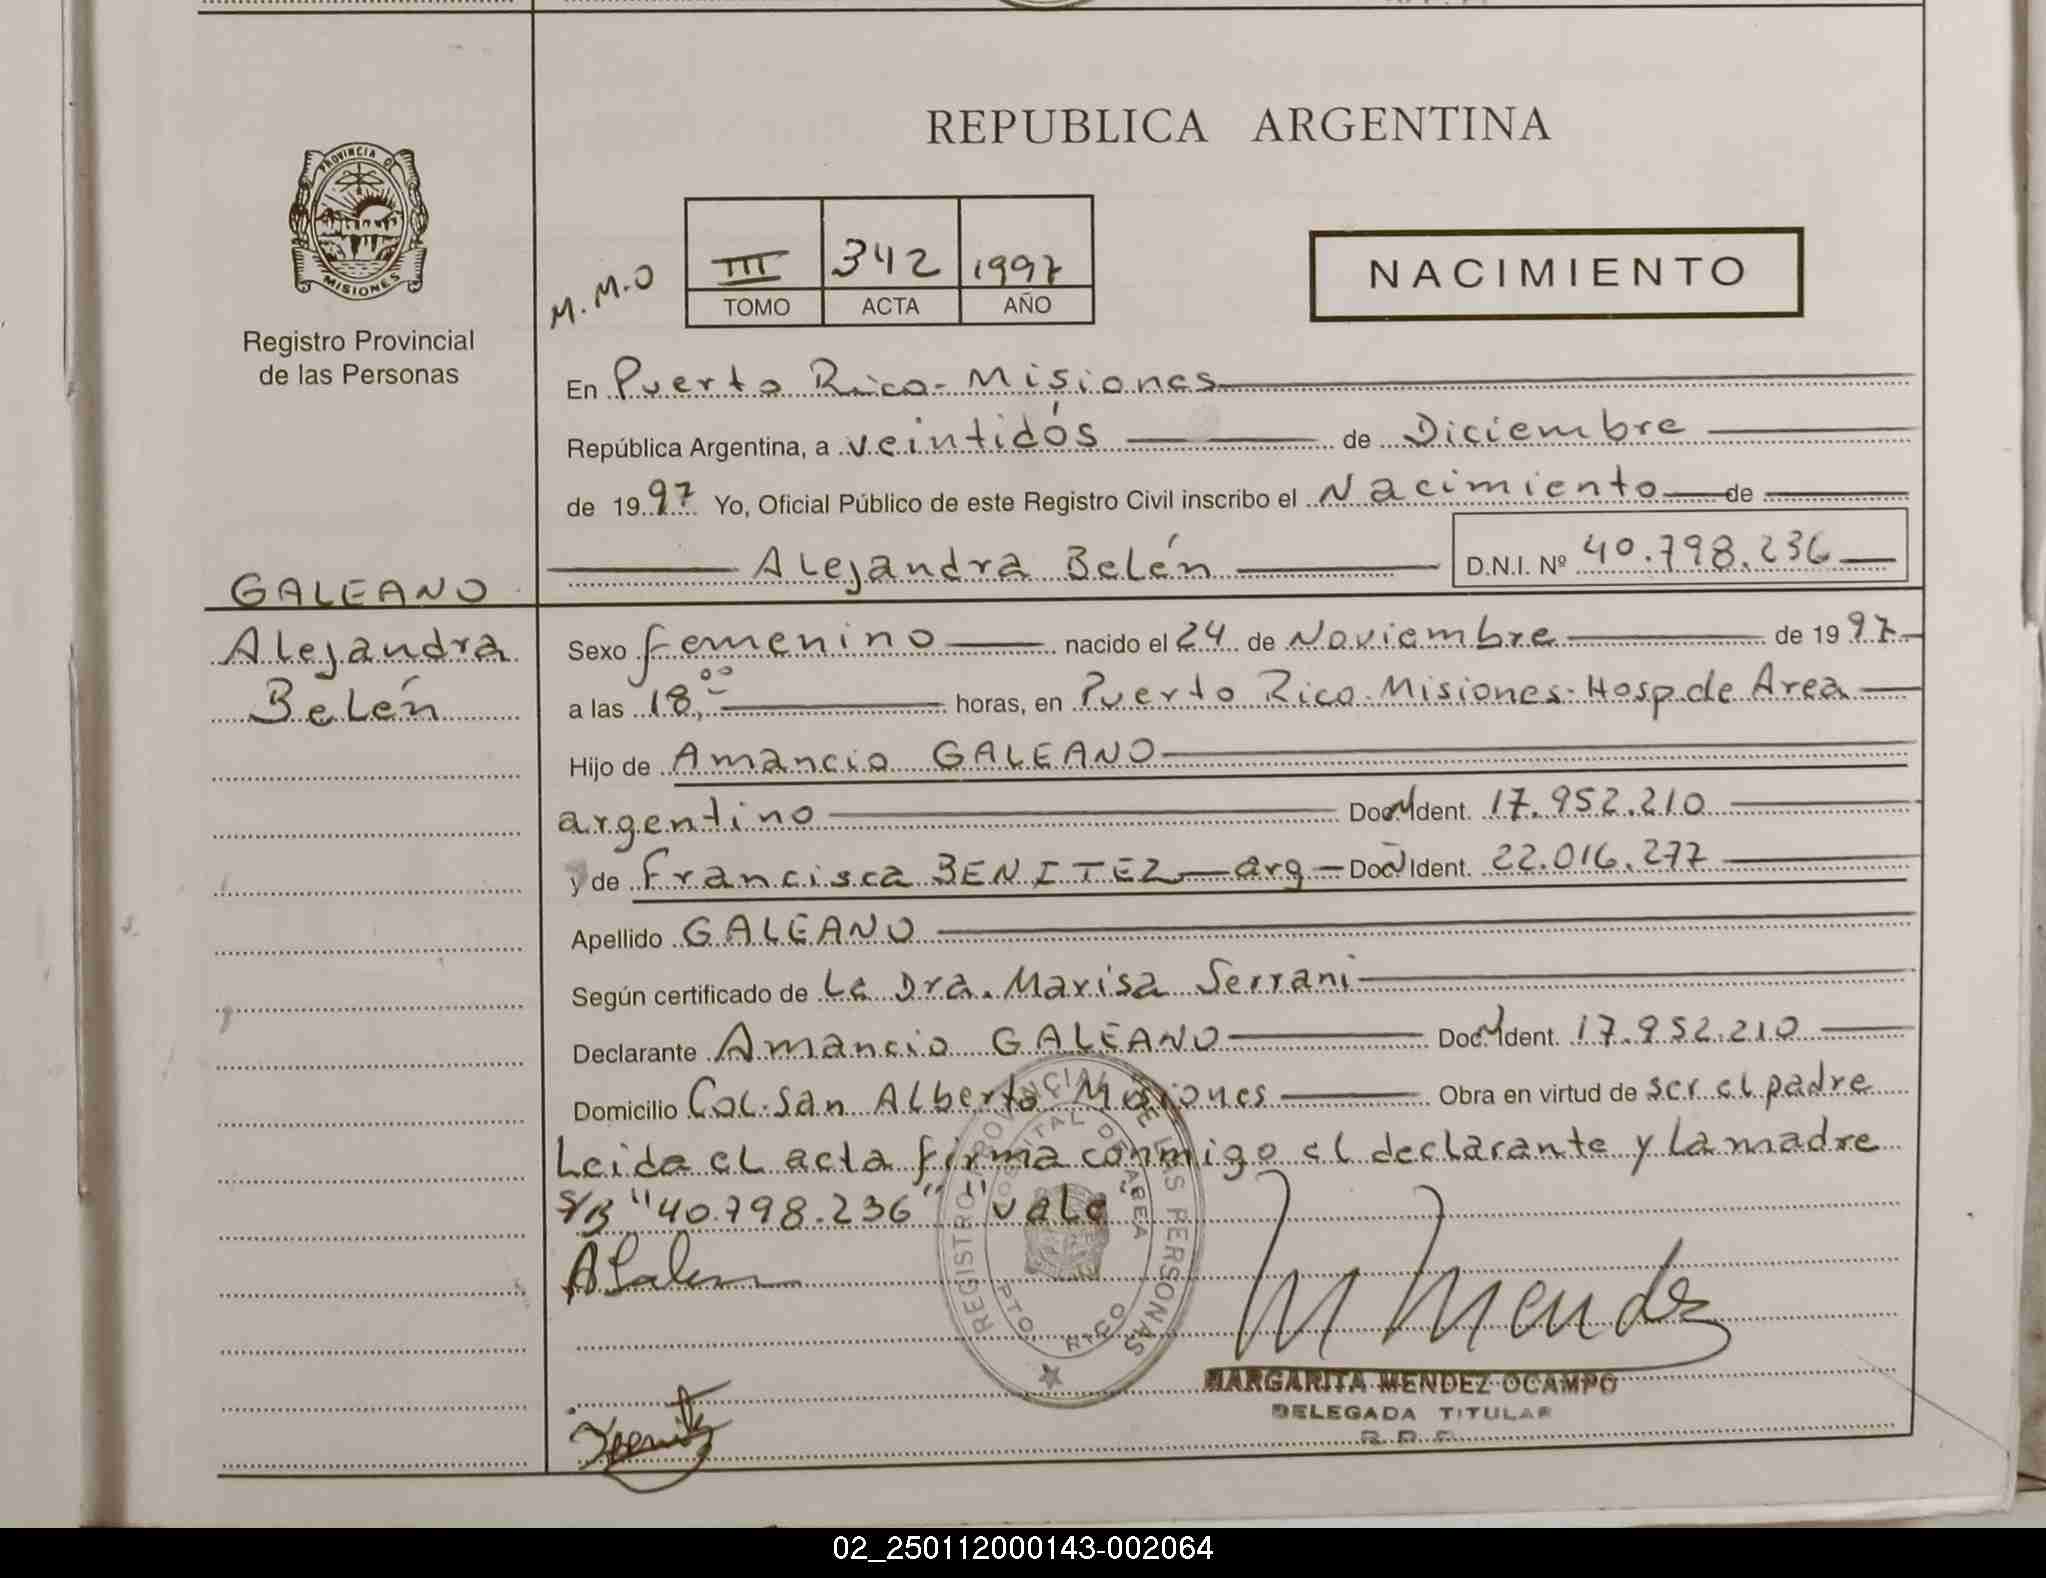 REPUBLICA ARGENTINA
PROVINCIA D
MISIONES
Registro Provincial
de las Personas
M.M.O
III 342 1997
TOMO ACTA AÑO
NACIMIENTO
En Puerto Rico - Misiones
República Argentina, a veintidós de Diciembre
de 1997 Yo, Oficial Público de este Registro Civil inscribo el Nacimiento de
Alejandra Belén D.N.I. Nº 40.798.236
GALEANO
Alejandra
Belén
Sexo femenino nacido el 24 de Noviembre de 1997
a las 18,00 horas, en Puerto Rico. Misiones. Hosp. de Area
Hijo de Amancio GALEANO
argentino Doc. Ident. 17.952.210
y de Francisca BENITEZ - arg - Doc. Ident. 22.016.277
Apellido GALEANO
Según certificado de La Dra. Marisa Serrani
Declarante Amancio GALEANO Doc. Ident. 17.952.210
Domicilio Col. San Alberto Misiones Obra en virtud de ser el padre
Leida el acta firma conmigo el declarante y la madre
S/B "40.798.236" "vale"
REGISTRO PROVINCIAL DE LAS PERSONAS
HOSPITAL DE AREA
PTO. RICO
M Mendez
MARGARITA MENDEZ OCAMPO
DELEGADA TITULAR
R.P.P.
02_250112000143-002064